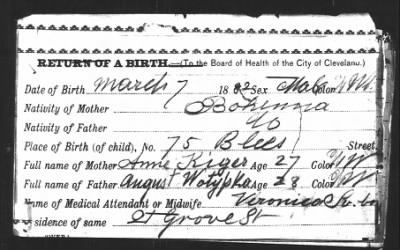 RETURN OF A BIRTH.—(To the Board of Health of the City of Cleveland.)
Date of Birth March 7 1882 Sex Male Color W
Nativity of Mother Bohemia
Nativity of Father do
Place of Birth (of child), No. 75 Blees Street.
Full name of Mother Anne Kiger Age 27 Color W
Full name of Father August Wotypka Age 28 Color W
Name of Medical Attendant or Midwife Veronica
Residence of same Grove St